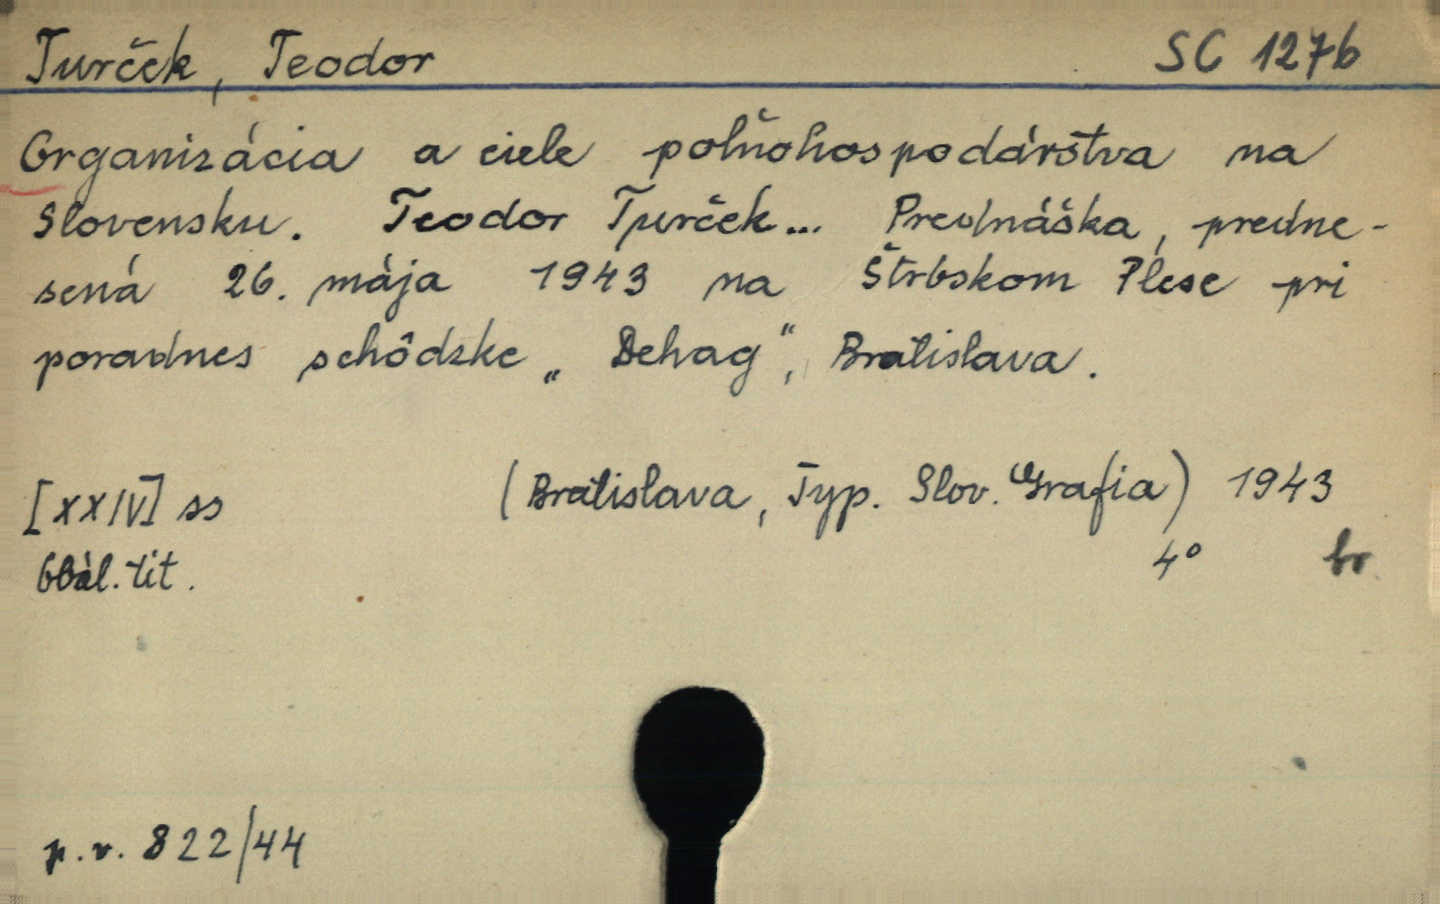 Turček, Teodor SC 1276
Organizácia a ciele poľnohospodárstva na
Slovensku. Teodor Turček... Prednáška, predne-
sená 26. mája 1943 na Štrbskom Plese pri
poradnes schôdzke „Dehag“, Bratislava.
[XXIV] ss (Bratislava, Typ. Slov. Grafia) 1943
Obál. tit. 4° br.
p.v. 822/44